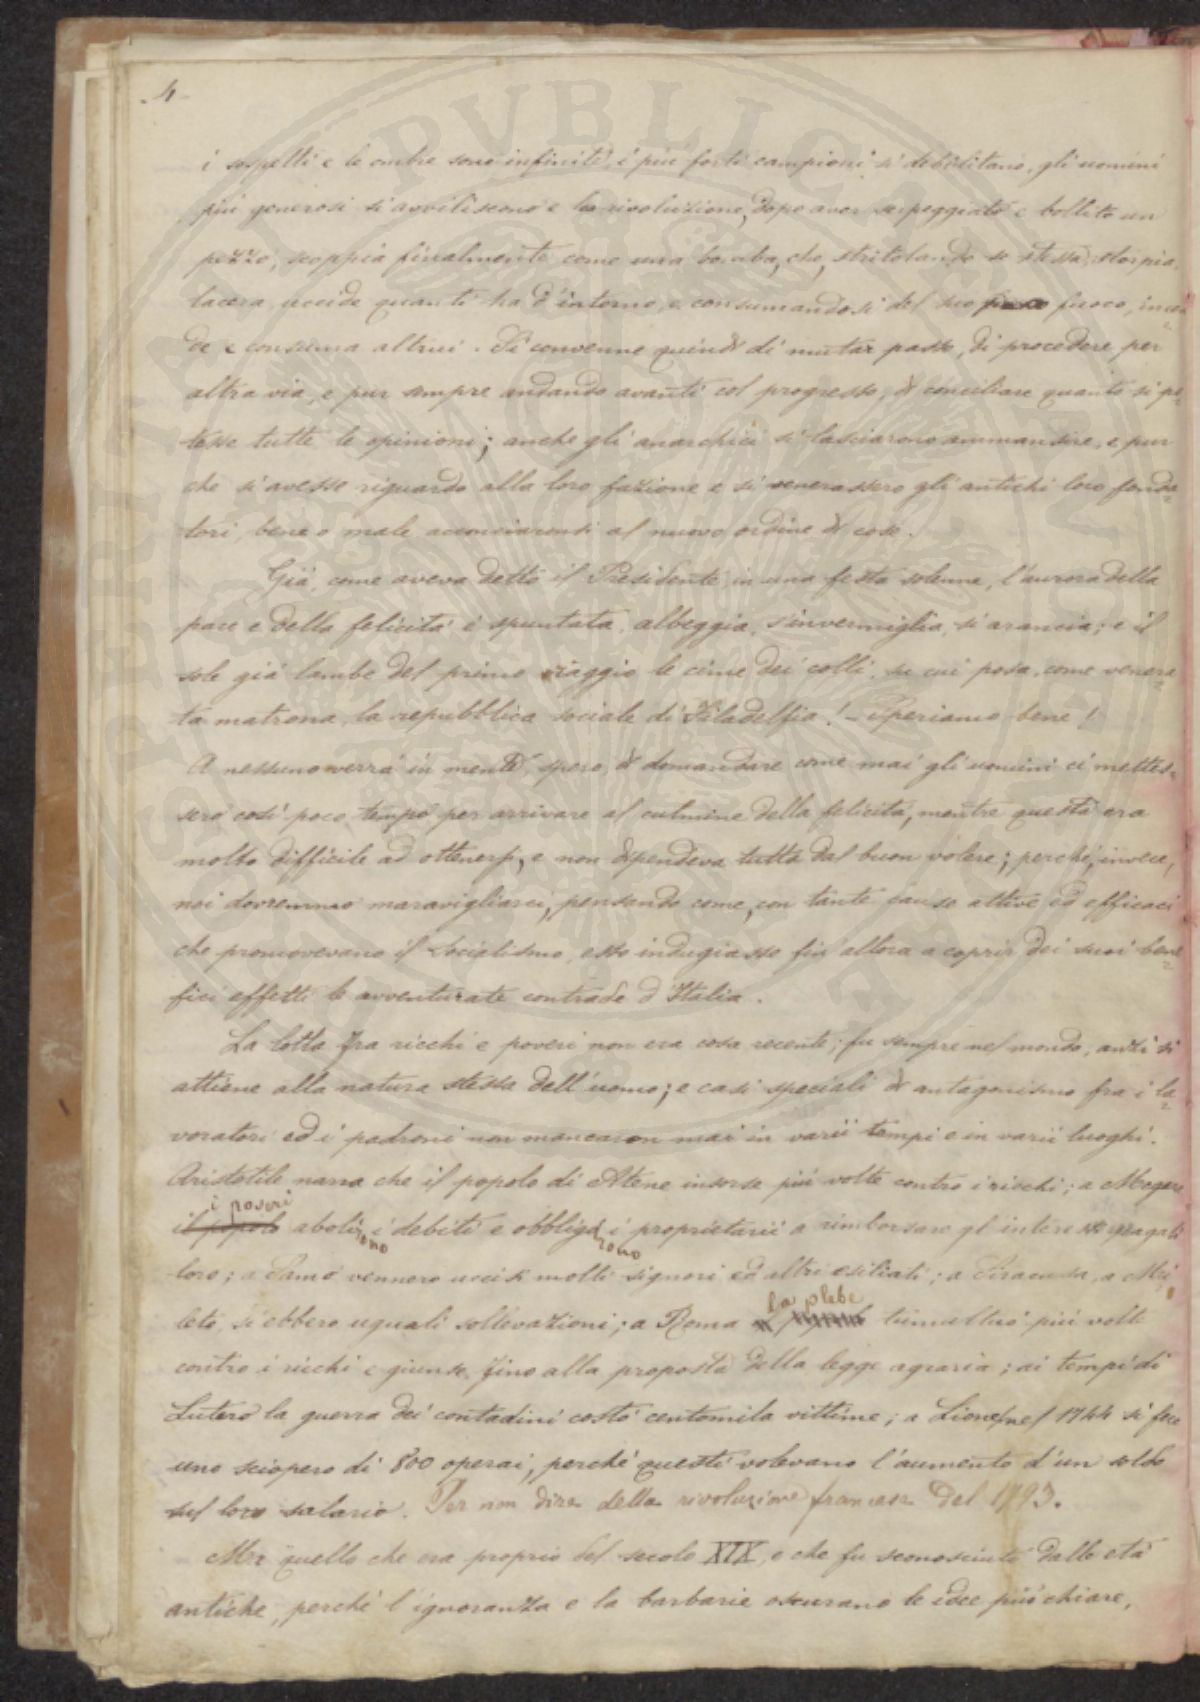 4
i sospetti e le ombre sono infinite, i più forti campioni si debilitano, gli uomini
più generosi si avviliscono e la rivoluzione, dopo aver serpeggiato e bollito un
pezzo, scoppia finalmente come una bomba, che, stritolando se stessa, storpia,
lacera, uccide quanti ha d'intorno, e consumandosi del suo fuoco, incen=
de e consuma altrui. Si convenne quindi di mutar passo, di procedere per
altra via, e pur sempre andando avanti col progresso, di conciliare quanto si po=
tesse tutte le opinioni; anche gli anarchici si lasciarono ammansire, e pur
che si avesse riguardo alla loro fazione e si venerassero gli antichi loro fonda=
tori, bene o male acconciaronsi al nuovo ordine di cose.
Già, come aveva detto il Presidente in una festa solenne, l'aurora della
pace e della felicità è spuntata, albeggia, s'invermiglia, si arancia; e il
sole già lambe del primo raggio le cime dei colli, su cui posa, come venera=
ta matrona, la repubblica sociale di Filadelfia! - Speriamo bene!
A nessuno verrà in mente, spero, di domandare come mai gli uomini ci mettes=
sero così poco tempo per arrivare al culmine della felicità, mentre questa era
molto difficile ad ottenersi, e non dipendeva tutta dal buon volere; perché, invece,
noi dovremmo maravigliarci, pensando come, con tante cause attive ed efficaci
che promovevano il Socialismo, esso indugiasse fin allora a coprir dei suoi bene=
fici effetti le avventurate contrade d'Italia.
La lotta fra ricchi e poveri non era cosa recente; fu sempre nel mondo, anzi si
attiene alla natura stessa dell'uomo; e casi speciali di antagonismo fra i la=
voratori ed i padroni non mancaron mai in varii tempi e in varii luoghi.
Aristotile narra che il popolo di Atene insorse più volte contro i ricchi; a Megara
i poveri
il popolo abolirono i debiti e obbligarono i proprietarii a rimborsare gl'interessi pagati
loro; a Samo vennero uccisi molti signori ed altri esiliati; a Siracusa, a Mi=
la plebe
leto, si ebbero uguali sollevazioni; a Roma il popolo tumultuò più volte
contro i ricchi e giunse fino alla proposta della legge agraria; ai tempi di
Lutero la guerra dei contadini costò centomila vittime; a Lione nel 1744 si fece
uno sciopero di 800 operai, perché questi volevano l'aumento d'un soldo
sul loro salario. Per non dire della rivoluzione francese del 1793.
Ma quello che era proprio del secolo XIX, e che fu sconosciuto dalle età
antiche, perché l'ignoranza e la barbarie oscurano le idee più chiare,